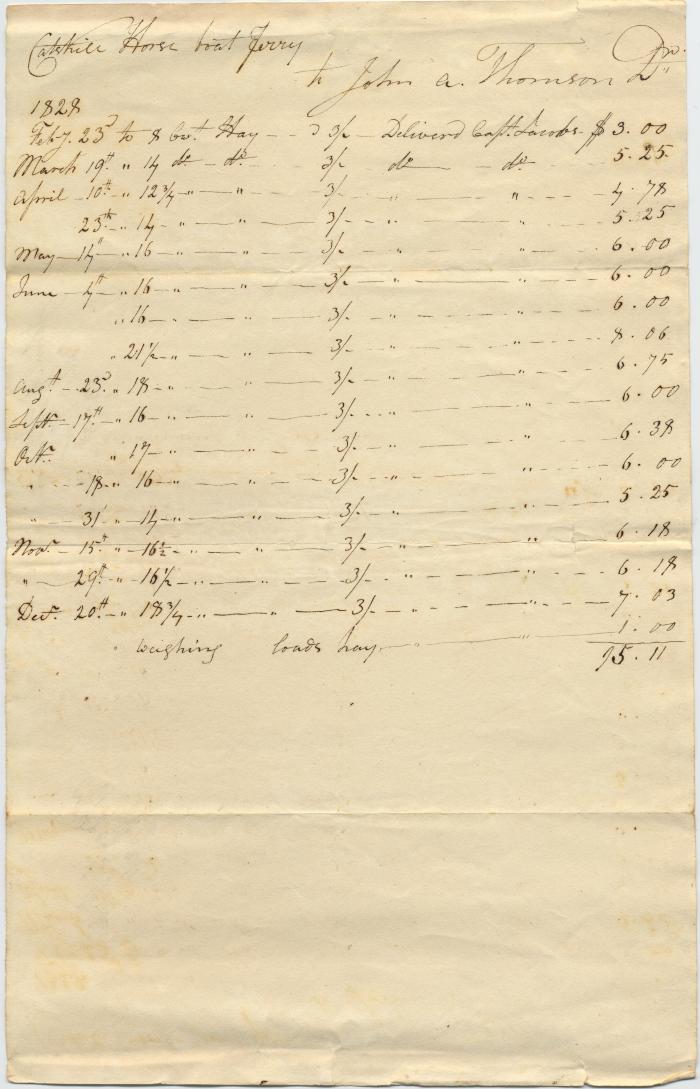 Catskill Horse boat Ferry
to John A. Thomson Dr.
1828
Feby. 23d to 8 Cwt. Hay - - 3/- Deliverd Capt. Jacobs - $ 3.00
March 19th " 14 do - do 3/- do do 5.25
April 10th " 12 3/4 " " 3/- " " 4.78
23th " 14 " " 3/- " " 5.25
May 14th " 16 " " 3/- " " 6.00
June 4th " 16 " " 3/- " " 6.00
" 16 " " 3/- " " 6.00
" 21 1/2 " " 3/- " " 8.06
Augt. 23d " 18 " " 3/- " " 6.75
Sept. 17th " 16 " " 3/- " " 6.00
Octr. " 17 " " 3/- " " 6.38
" 18 " 16 " " 3/- " " 6.00
" 31 " 14 " " 3/- " " 5.25
Novr. 15th " 16 1/2 " " 3/- " " 6.18
" 29th " 16 1/2 " " 3/- " " 6.18
Decr. 20th " 18 3/4 " " 3/- " " 7.03
" weighing loads hay " " 1.00
95.11